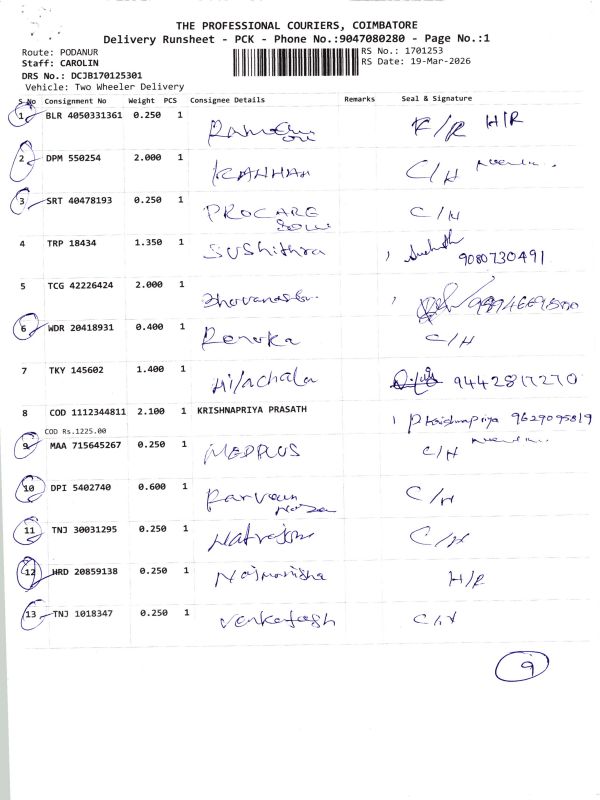 THE PROFESSIONAL COURIERS, COIMBATORE
Delivery Runsheet - PCK - Phone No.:9047080280 - Page No.:1
Route: PODANUR RS No.: 1701253
Staff: CAROLIN RS Date: 19-Mar-2026
DRS No.: DCJB170125301
Vehicle: Two Wheeler Delivery
S No Consignment No Weight PCS Consignee Details Remarks Seal & Signature
1 BLR 4050331361 0.250 1 K/R H/R
2 DPM 550254 2.000 1 KANNAN C/H
3 SRT 40478193 0.250 1 PROCARE C/H
4 TRP 18434 1.350 1 Sushithra 9080730491
5 TCG 42226424 2.000 1
6 WDR 20418931 0.400 1 Renuka C/H
7 TKY 145602 1.400 1 Hilachala 9442817270
8 COD 1112344811 2.100 1 KRISHNAPRIYA PRASATH PKrishnapriya 9629095819
COD Rs.1225.00
9 MAA 715645267 0.250 1 MEDPLUS C/H
10 DPI 5402740 0.600 1 Parveen C/H
11 TNJ 30031295 0.250 1 C/H
12 HRD 20859138 0.250 1 Najmunisha H/R
13 TNJ 1018347 0.250 1 Venkatesh C/H
9